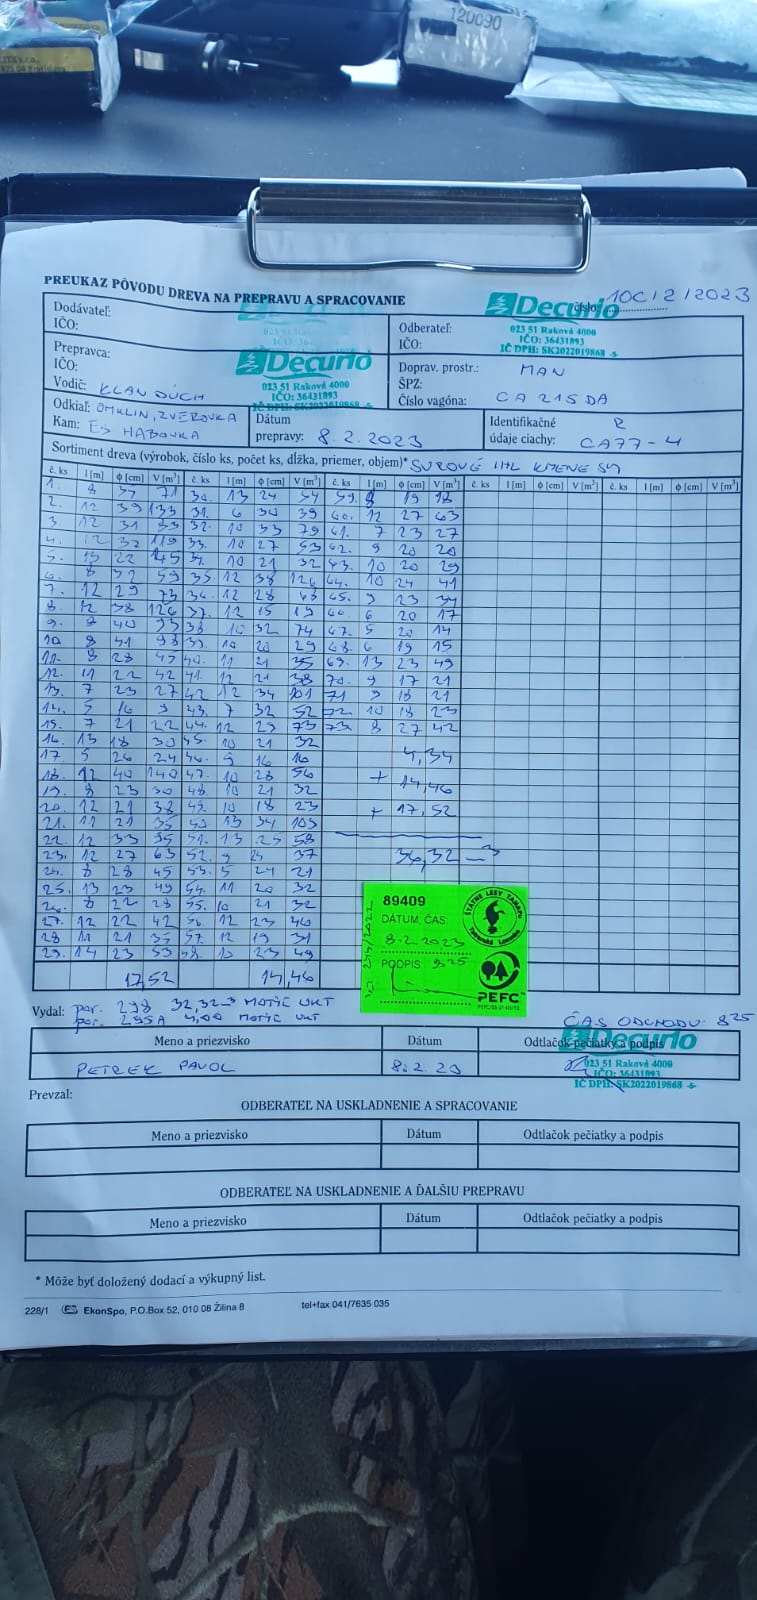 120090
PREUKAZ PÔVODU DREVA NA PREPRAVU A SPRACOVANIE
Decurio
číslo: 10C/2/2023
Dodávateľ:
IČO:
Odberateľ:
IČO:
023 51 Raková 4000
IČO: 36431893
IČ DPH: SK2022019868 -5-
Prepravca:
IČO:
Vodič: KLAN DÚCH
Decurio
023 51 Raková 4000
IČO: 36431893
Doprav. prostr.: MAN
ŠPZ:
Číslo vagóna: CA 215 DA
Odkiaľ: OMKLIN, ZVEROVKA
Kam: ES HABOVKA
Dátum
prepravy: 8.2.2023
Identifikačné R
údaje ciachy: CA77-4
Sortiment dreva (výrobok, číslo ks, počet ks, dĺžka, priemer, objem)* SUROVÉ IHL KMENE
č. ks l [m] ϕ [cm] V [m³] č. ks l [m] ϕ [cm] V [m³] č. ks l [m] ϕ [cm] V [m³] č. ks l [m] ϕ [cm] V [m³] č. ks l [m] ϕ [cm] V [m³]
1. 8 37 71 30. 13 24 54 59. 8 19 18
2. 12 39 133 31. 6 30 39 60. 12 27 63
3. 12 31 83 32. 10 33 79 61. 7 23 27
4. 12 37 119 33. 10 27 53 62. 9 20 20
5. 13 22 45 34. 10 21 32 63. 10 20 29
6. 8 32 59 35 12 38 126 64. 10 24 41
7. 12 29 73 36. 12 28 68 65. 9 23 34
8. 12 38 126 37. 12 15 19 66. 6 20 17
9. 7 40 93 38 10 32 74 67. 5 20 14
10 8 41 98 39. 10 20 29 68. 6 19 15
11. 8 28 45 40. 11 21 35 69. 13 23 49
12. 11 22 42 41. 12 21 38 70. 9 17 21
13. 7 23 27 42 12 34 101 71 9 18 21
14. 5 16 9 43. 7 32 52 72 10 18 23
15. 7 21 22 44. 12 29 73 73 8 27 42
16. 13 18 30 45. 10 21 32
17 5 26 24 46. 9 16 16 4,34
18. 12 40 140 47. 10 28 56 + 14,46
19. 8 23 30 48. 10 21 32
20. 12 21 38 49. 10 18 23 + 17,52
21. 11 21 35 50 13 34 109
22. 12 33 95 51. 13 25 58
23. 12 27 63 52. 9 25 37 36,32 m³
24. 8 28 45 53. 5 24 21
25. 13 23 49 54. 11 20 32
26. 8 22 28 55. 10 21 32
27. 12 22 42 56. 12 23 46
28 11 21 35 57. 12 19 31
29. 14 23 53 58. 10 23 49
17,52 14,46
89409
DÁTUM, ČAS.
8.2.2023
PODPIS 825
ŠTÁTNE LESY TANAPU
Tatranská Lomnica
PEFC
Vydal: por. 298 32,32 m³ MOTÍC UKT
por. 295A 4,00 MOTÍC UKT
ČAS ODCHODU: 8 25
Meno a priezvisko Dátum Odtlačok pečiatky a podpis
PETREK PAVOL 8.2.23
Decurio
023 51 Raková 4000
IČO: 36431893
IČ DPH: SK2022019868 -5-
Prevzal:
ODBERATEĽ NA USKLADNENIE A SPRACOVANIE
Meno a priezvisko Dátum Odtlačok pečiatky a podpis
ODBERATEĽ NA USKLADNENIE A ĎALŠIU PREPRAVU
Meno a priezvisko Dátum Odtlačok pečiatky a podpis
* Môže byť doložený dodací a výkupný list.
228/1 EkonSpo, P.O.Box 52, 010 08 Žilina 8 tel+fax 041/7635 035